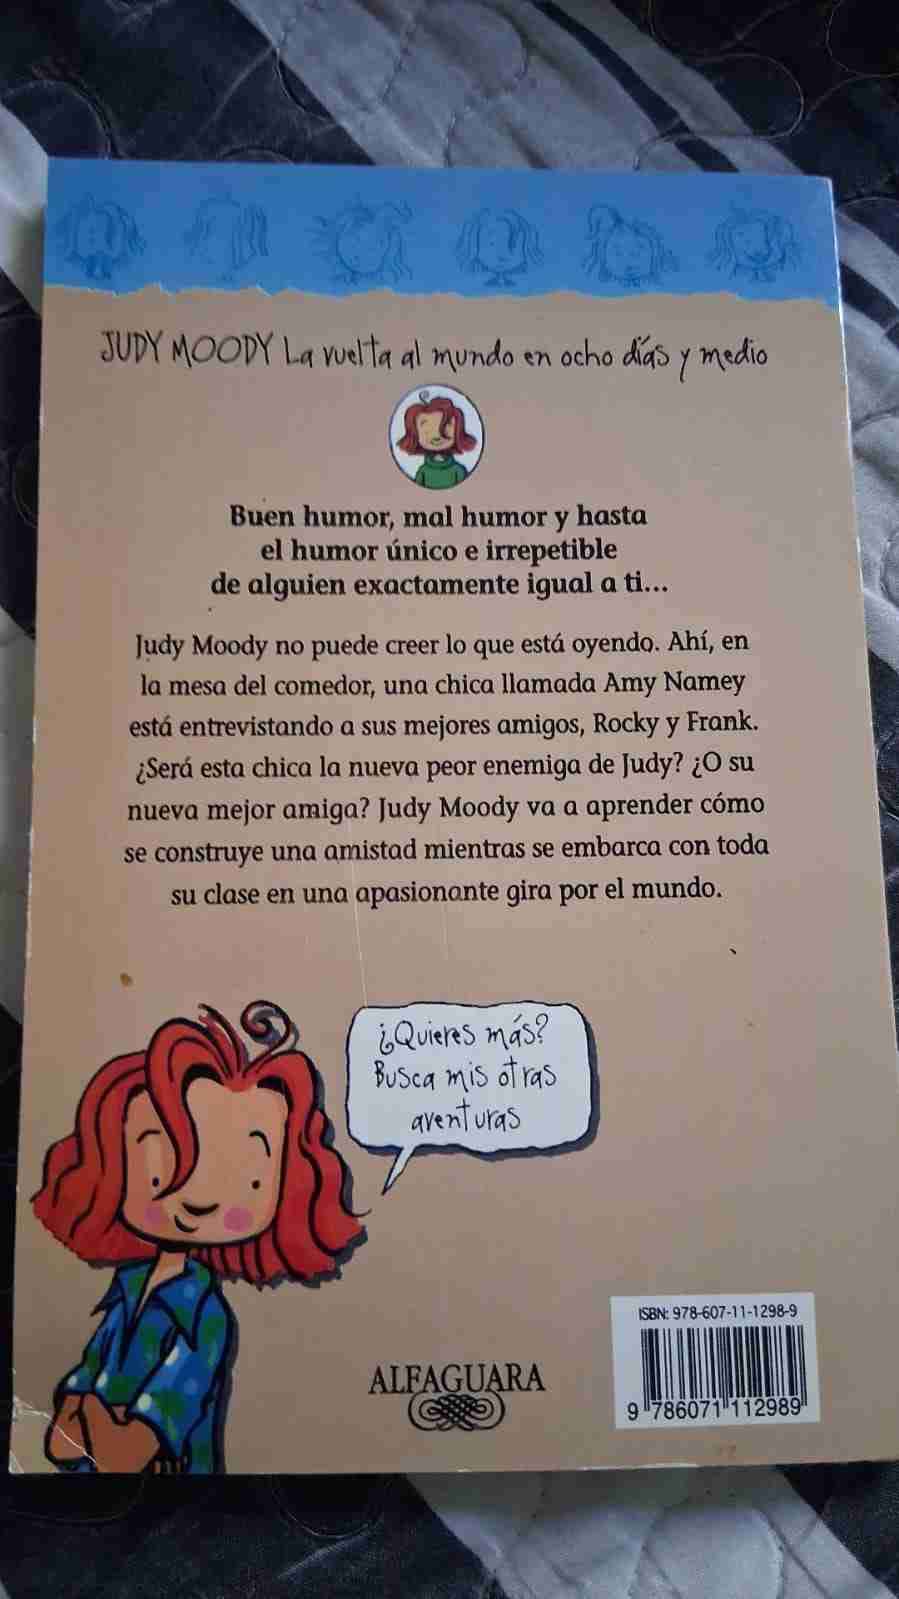 JUDY MOODY La vuelta al mundo en ocho días y medio
Buen humor, mal humor y hasta
el humor único e irrepetible
de alguien exactamente igual a ti...
Judy Moody no puede creer lo que está oyendo. Ahí, en
la mesa del comedor, una chica llamada Amy Namey
está entrevistando a sus mejores amigos, Rocky y Frank.
¿Será esta chica la nueva peor enemiga de Judy? ¿O su
nueva mejor amiga? Judy Moody va a aprender cómo
se construye una amistad mientras se embarca con toda
su clase en una apasionante gira por el mundo.
¿Quieres más?
Busca mis otras
aventuras
ALFAGUARA
ISBN: 978-607-11-1298-9
9 786071 112989